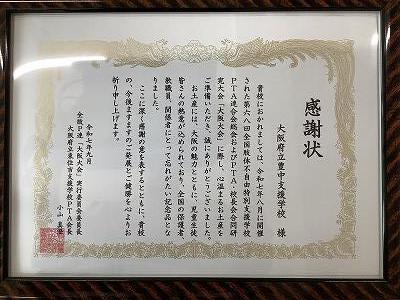 感謝状
大阪府立豊中支援学校 様
貴校におかれましては、令和七年八月に開催
された第六八回全国肢体不自由特別支援学校
PTA連合会総会およびPTA・校長会合同研
究大会「大阪大会」に際し、心温まるお土産を
ご準備いただき、誠にありがとうございました。
お土産には、大阪の魅力とともに、児童生徒
皆さんの熱意が込められており、全国の保護者、
教職員、関係者にとって忘れがたい記念品とな
りました。
ここに深く感謝の意を表するとともに、貴校
の、今後ますますのご発展とご健勝を心よりお
祈り申し上げます。
令和七年九月
全肢P連「大阪大会」実行委員会委員長
大阪府立東住吉支援学校PTA会長
小山